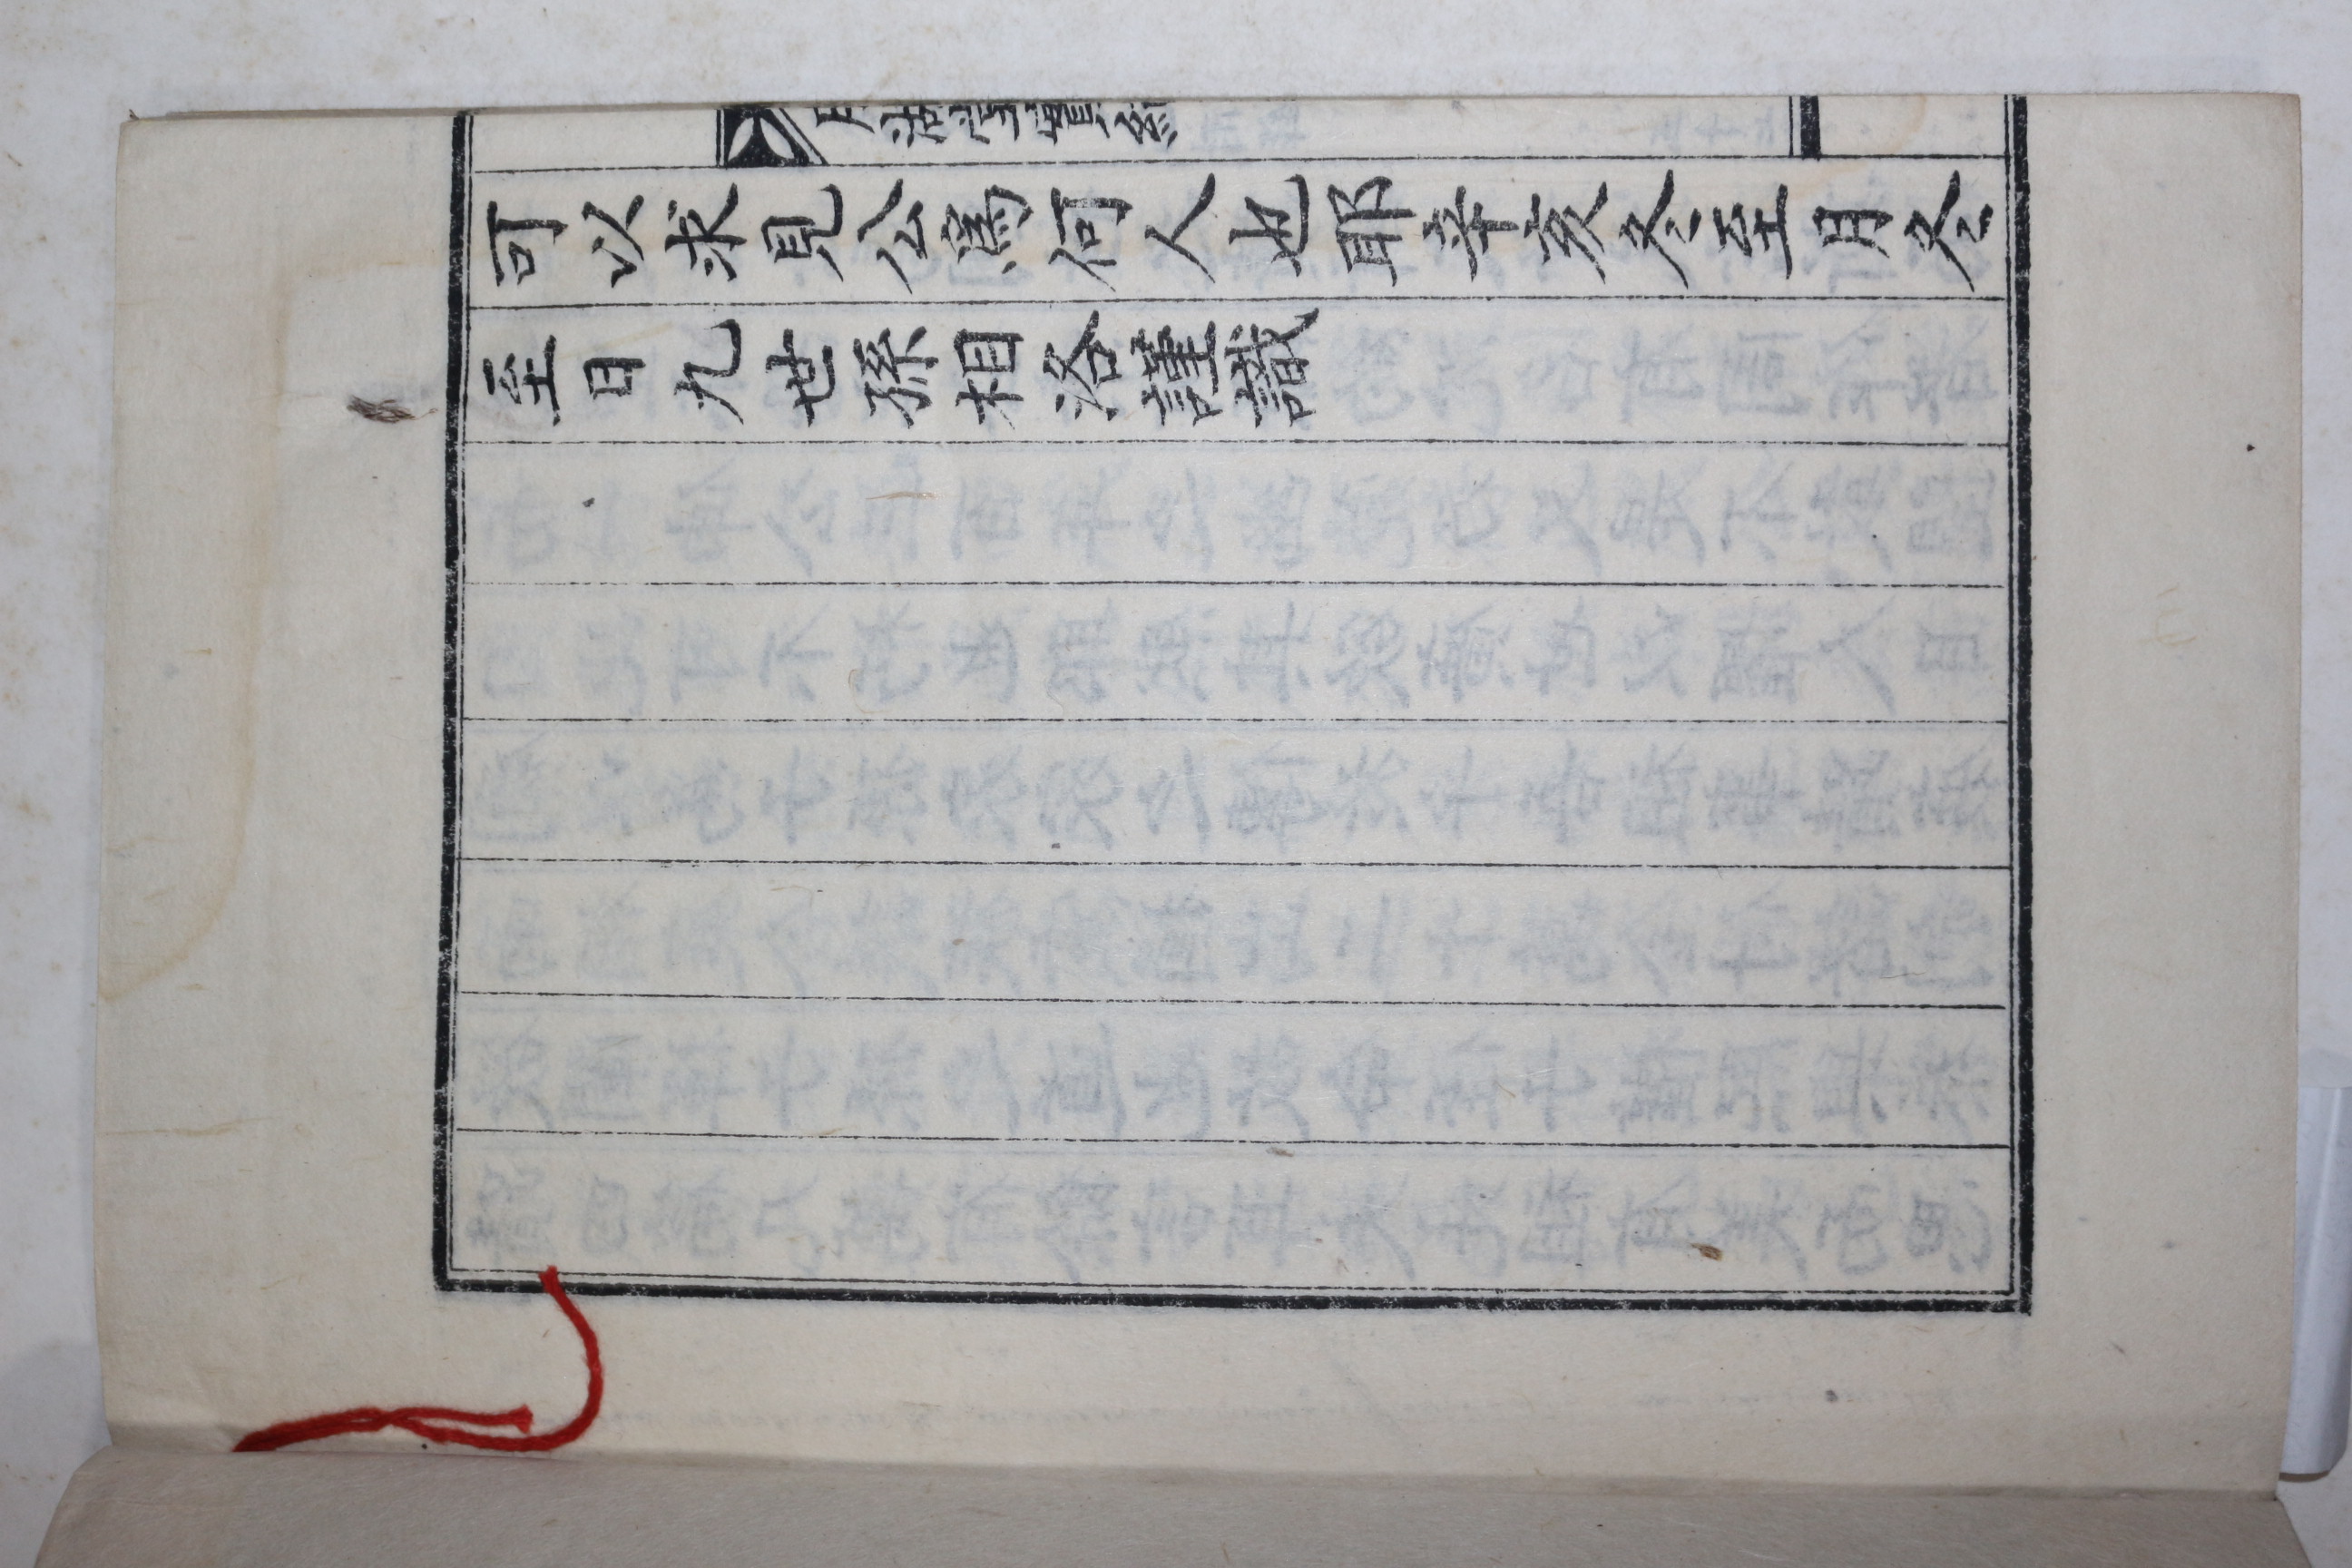 可以求見公爲何人也耶辛亥冬至月冬
至日九世孫相洛謹識